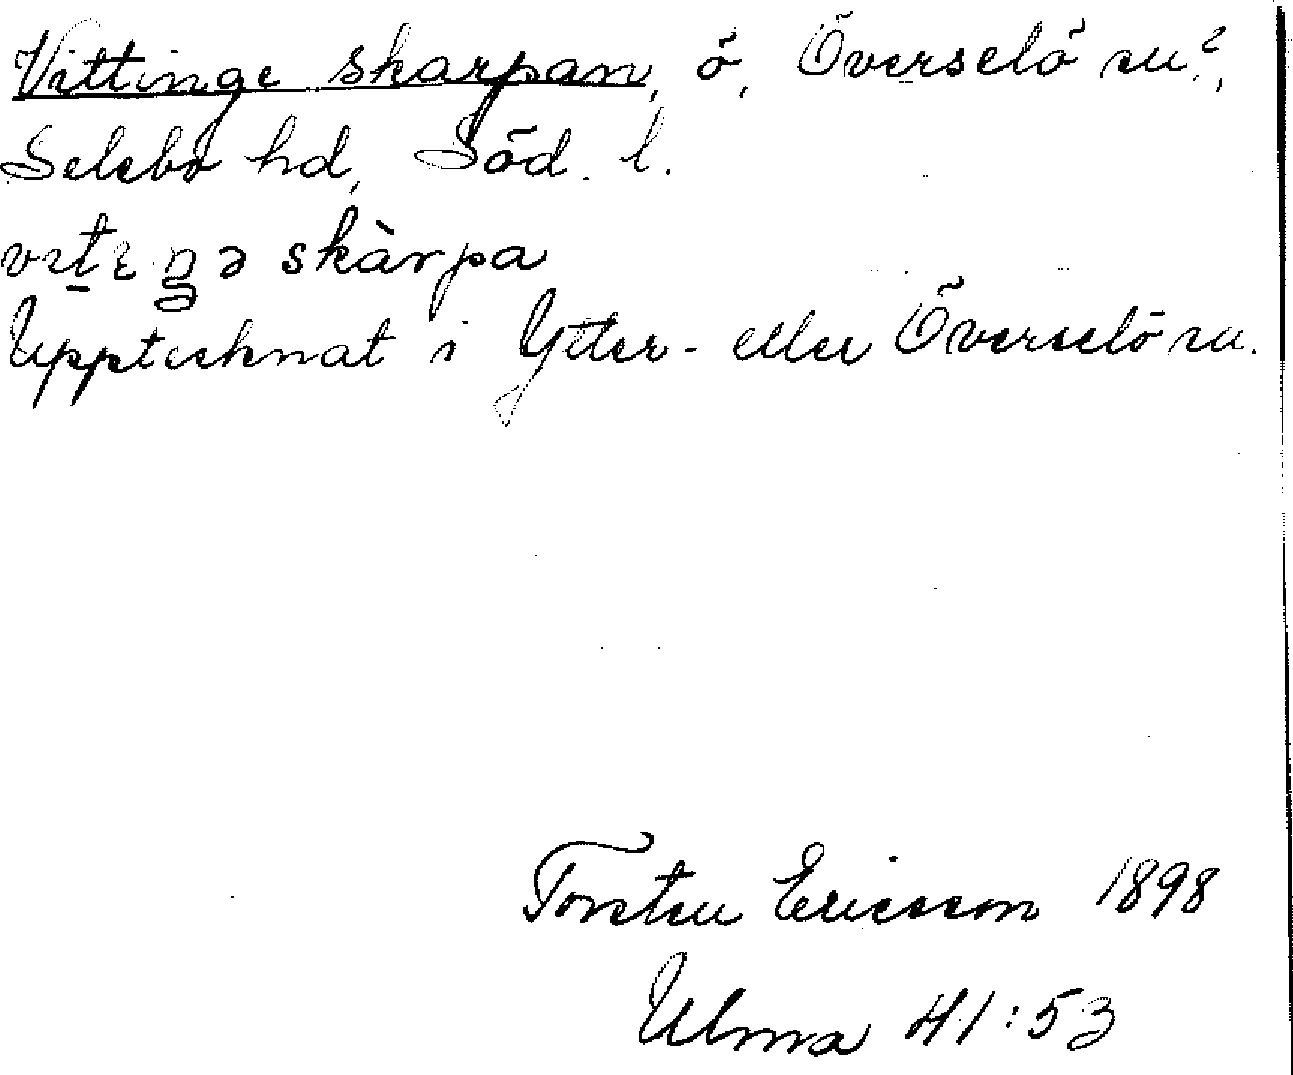 Vittinge skarpan, ö, Överselö sn?,
Selebo hd, Söd. l.
skàrpa
Upptecknat i Ytter- eller Överselö sn.
Torsten Ericsson 1898
Ulma 41:53